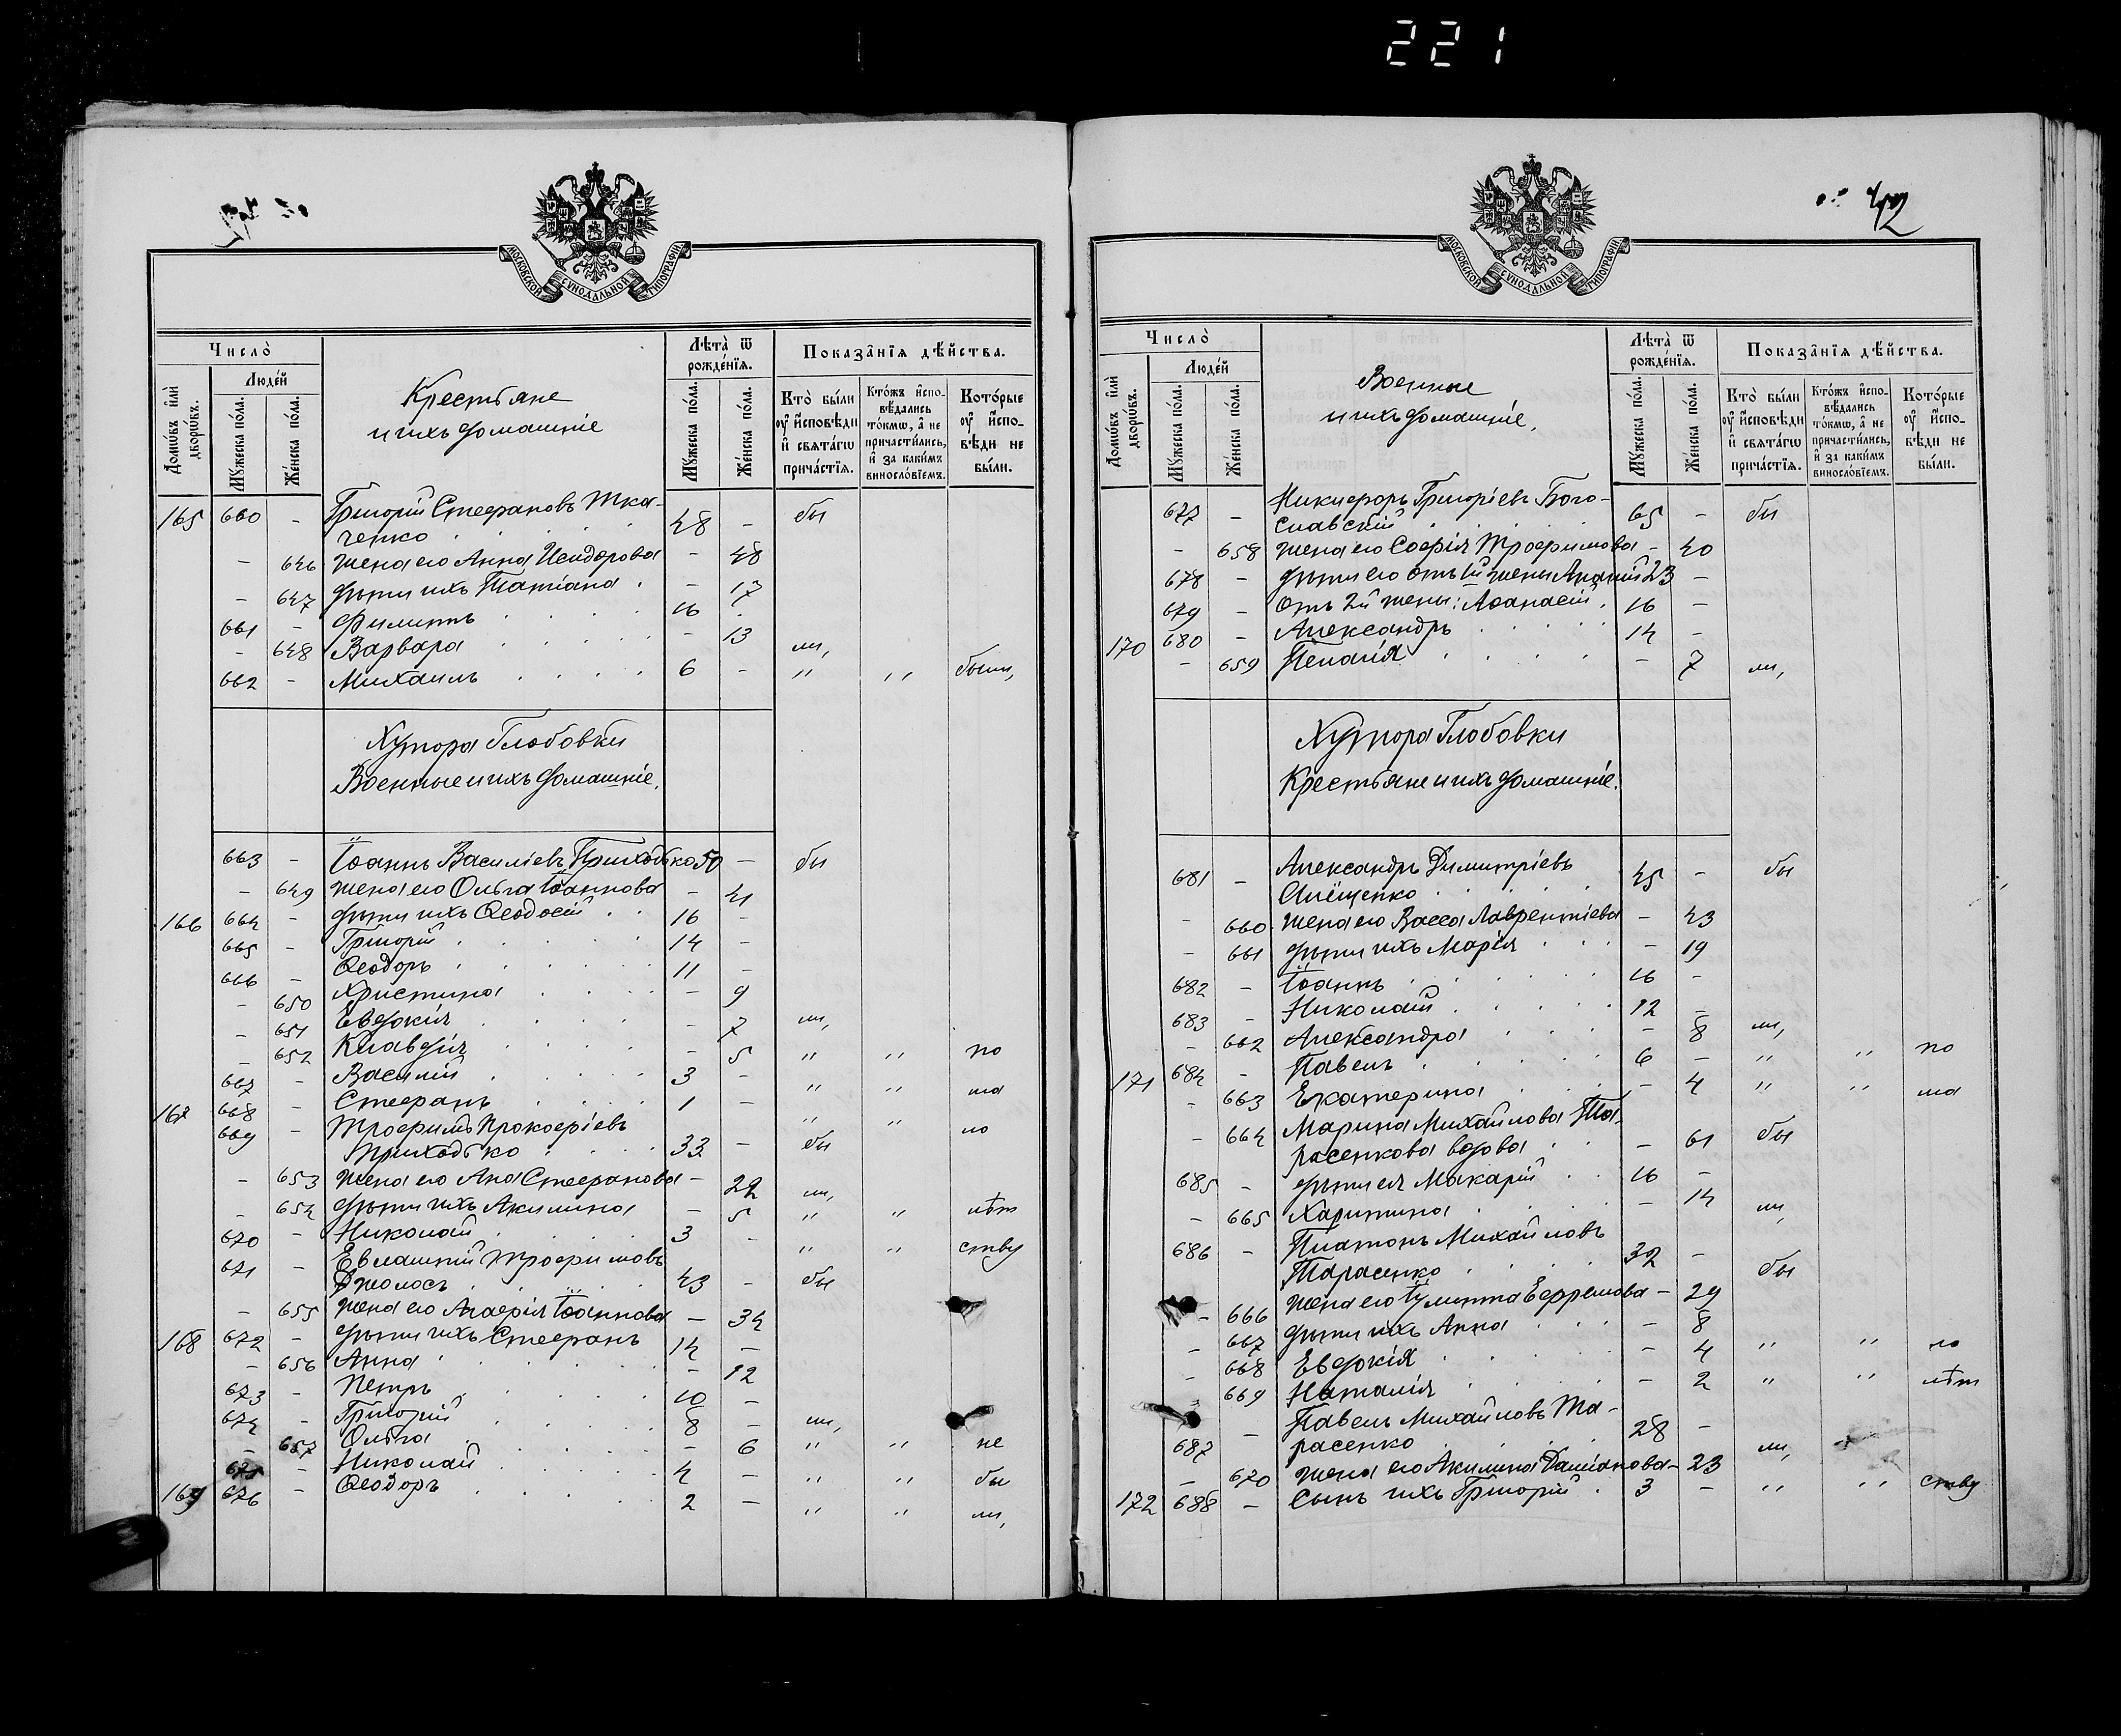 221
МОСКОВСКОЙ СѴНОДАЛЬНОЙ ТИПОГРАФІИ
Число̀
Домѡ́въ и҆лѝ дворѡ́въ.
Люде́й
Мꙋ́жеска по́ла.
Же́нска по́ла.
Крестьяне
и ихъ домашніе
Лѣта̀ ѿ рожде́нїѧ.
Мꙋ́жеска по́ла.
Же́нска по́ла.
Показа̑нїѧ дѣ́йства.
Кто̀ бы́ли ᲂу҆ и҆сповѣ́ди и҆ свѧта́гѡ прича́стїѧ.
Кто́жъ и҆спо-вѣ́дались то́кмѡ, а҆ не причасти́лись, и҆ за каки́мъ винослѡ́вїемъ.
Кото́рые ᲂу҆ и҆спо-вѣ́ди не бы́ли.
165 660 - Григорій Стефановъ Тка-
ченко 48 - бы
- 646 жена его Анна Исидорова - 48
- 647 дѣти ихъ Татіана - 17
661 - Филиппъ 16 -
- 648 Варвара - 13 ли,
662 - Михаилъ 6 - " " были,
Хутора Глобовки
Военные и ихъ домашніе.
663 - Іоаннъ Василіевъ Приходько 50 - бы
- 649 жена его Ольга Іоаннова - 41
166 664 - дѣти ихъ Ѳеодосій 16 -
665 - Григорій 14 -
666 - Ѳеодоръ 11 -
- 650 Христина - 9
- 651 Евдокія - 7 ли,
- 652 Клавдія - 5 " " по
667 - Василій 3 - " " ма
167 668 - Стефанъ 1 - " " ло
669 - Трофимъ Прокофіевъ
Приходько 33 - бы
- 653 жена его Анна Стефанова - 22 ли,
- 654 дѣти ихъ Акилина - 5 " " лѣт
670 - Николай 3 - " " ству
671 - Евлампій Трофимовъ
Джолосъ 43 - бы
- 655 жена его Агафія Іоаннова - 34
168 672 - дѣти ихъ Стефанъ 14 -
- 656 Анна - 12
673 - Петръ 10 -
674 - Григорій 8 - ли,
- 657 Ольга - 6 " " не
675 - Николай 4 - " " бы
169 676 - Ѳеодоръ 2 - " " ли,
МОСКОВСКОЙ СѴНОДАЛЬНОЙ ТИПОГРАФІИ
Число̀
Домѡ́въ и҆лѝ дворѡ́въ.
Люде́й
Мꙋ́жеска по́ла.
Же́нска по́ла.
Военные
и ихъ домашніе.
Лѣта̀ ѿ рожде́нїѧ.
Мꙋ́жеска по́ла.
Же́нска по́ла.
Показа̑нїѧ дѣ́йства.
Кто̀ бы́ли ᲂу҆ и҆сповѣ́ди и҆ свѧта́гѡ прича́стїѧ.
Кто́жъ и҆спо-вѣ́дались то́кмѡ, а҆ не причасти́лись, и҆ за каки́мъ винослѡ́вїемъ.
Кото́рые ᲂу҆ и҆спо-вѣ́ди не бы́ли.
677 - Никифоръ Григоріевъ Бого-
славскій 65 - бы
- 658 жена его Софія Трофимова - 40
678 - дѣти его отъ 1й жены Ананій 23 -
679 - отъ 2й жены: Аѳанасій 16 -
170 680 - Александръ 14 -
- 659 Пелагія - 7 ли,
Хутора Глобовки
Крестьяне и ихъ домашніе.
681 - Александръ Димитріевъ
Слёщенко 45 - бы
- 660 жена его Васса Лаврентіева - 43
- 661 дѣти ихъ Марія - 19
682 - Іоаннъ 16 -
683 - Николай 12 -
- 662 Александра - 8 ли,
171 684 - Павелъ 6 - " " по
- 663 Екатерина - 4 " " ма
- 664 Марина Михайлова Та-
расенкова вдова - 61 бы
685 - дѣти ея Макарій 16 -
- 665 Харитина - 14 ли,
686 - Платонъ Михайловъ
Тарасенко 32 - бы
- 666 жена его Іулитта Ефремова - 29
- 667 дѣти ихъ Анна - 8
- 668 Евдокія - 4 " " ло
- 669 Наталія - 2 " " лѣт
687 - Павелъ Михайловъ Та-
расенко 28 - ли,
- 670 жена его Акилина Даміанова - 23
172 688 - Сынъ ихъ Григорій 3 - " " ству